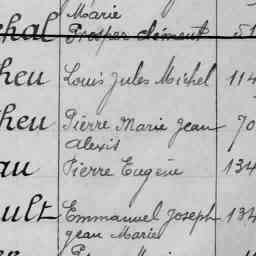 Marie
chal Prosper Clément 51
heu Louis Jules Michel 114
heu Pierre Marie Jean 70
Alexis
au Pierre Eugène 134
ult Emmanuel Joseph 134
Jean Marie